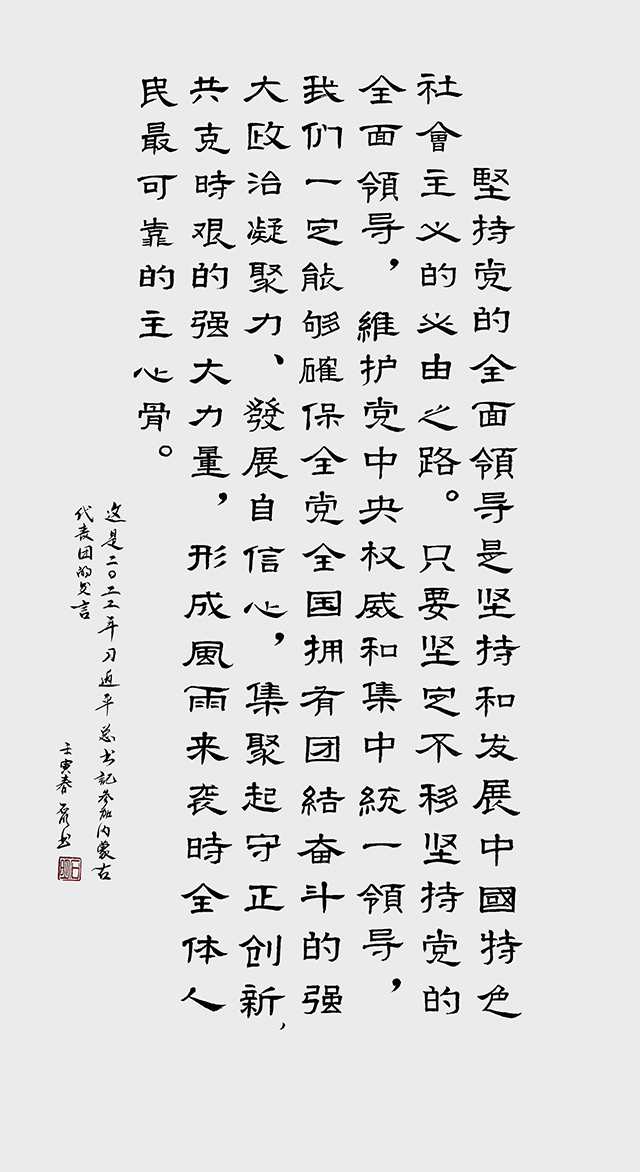 堅持党的全面領导是坚持和发展中國特色
社會主义的必由之路。只要坚定不移坚持党的
全面領导，維护党中央权威和集中統一領导，
我们一定能够確保全党全国拥有团結奋斗的强
大政治凝聚力、發展自信心，集聚起守正创新，
共克時艰的强大力量，形成風雨来袭時全体人
民最可靠的主心骨。
这是二〇二二年习近平总书記参加内蒙古
代表团的发言
壬寅春